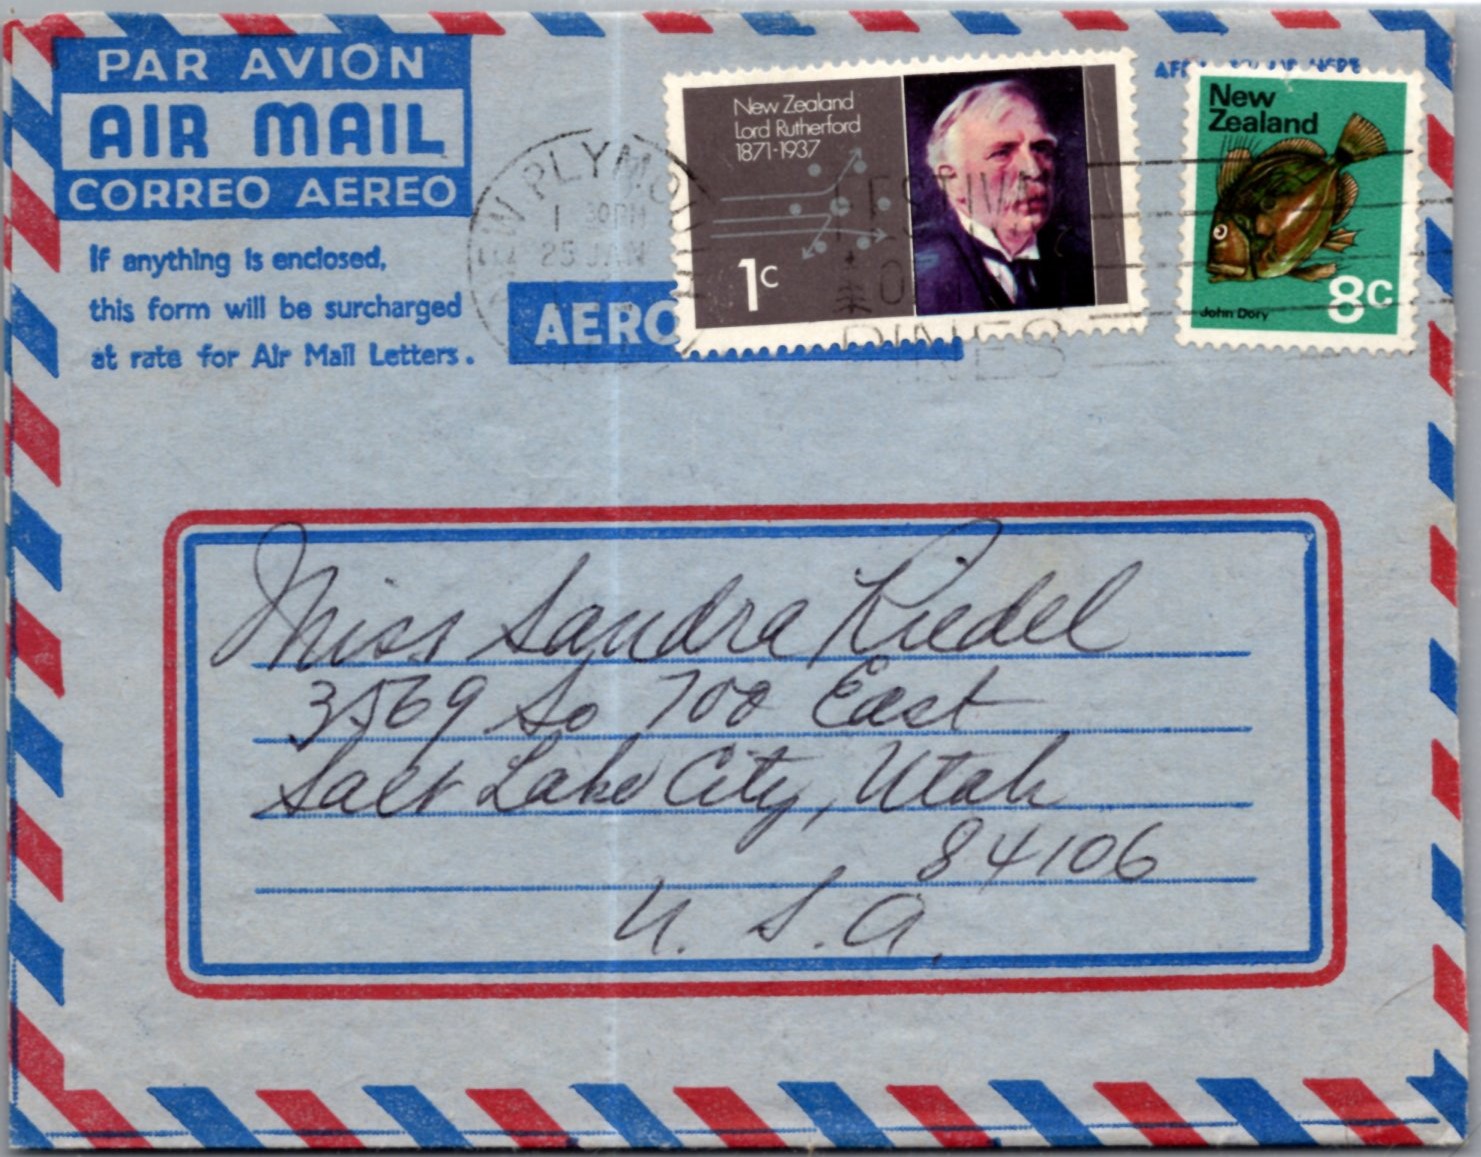 PAR AVION
AIR MAIL
CORREO AEREO
If anything is enclosed,
this form will be surcharged
at rate for Air Mail Letters.
AERO
New Zealand
Lord Rutherford
1871-1937
1c
New
Zealand
John Dory
8c
W PLYMOU
1 30PM
25 JAN
FESTIVAL
O
PINES
Miss Sandra Riedel
3569 So 700 East
Salt Lake City, Utah
84106
U. S. A.